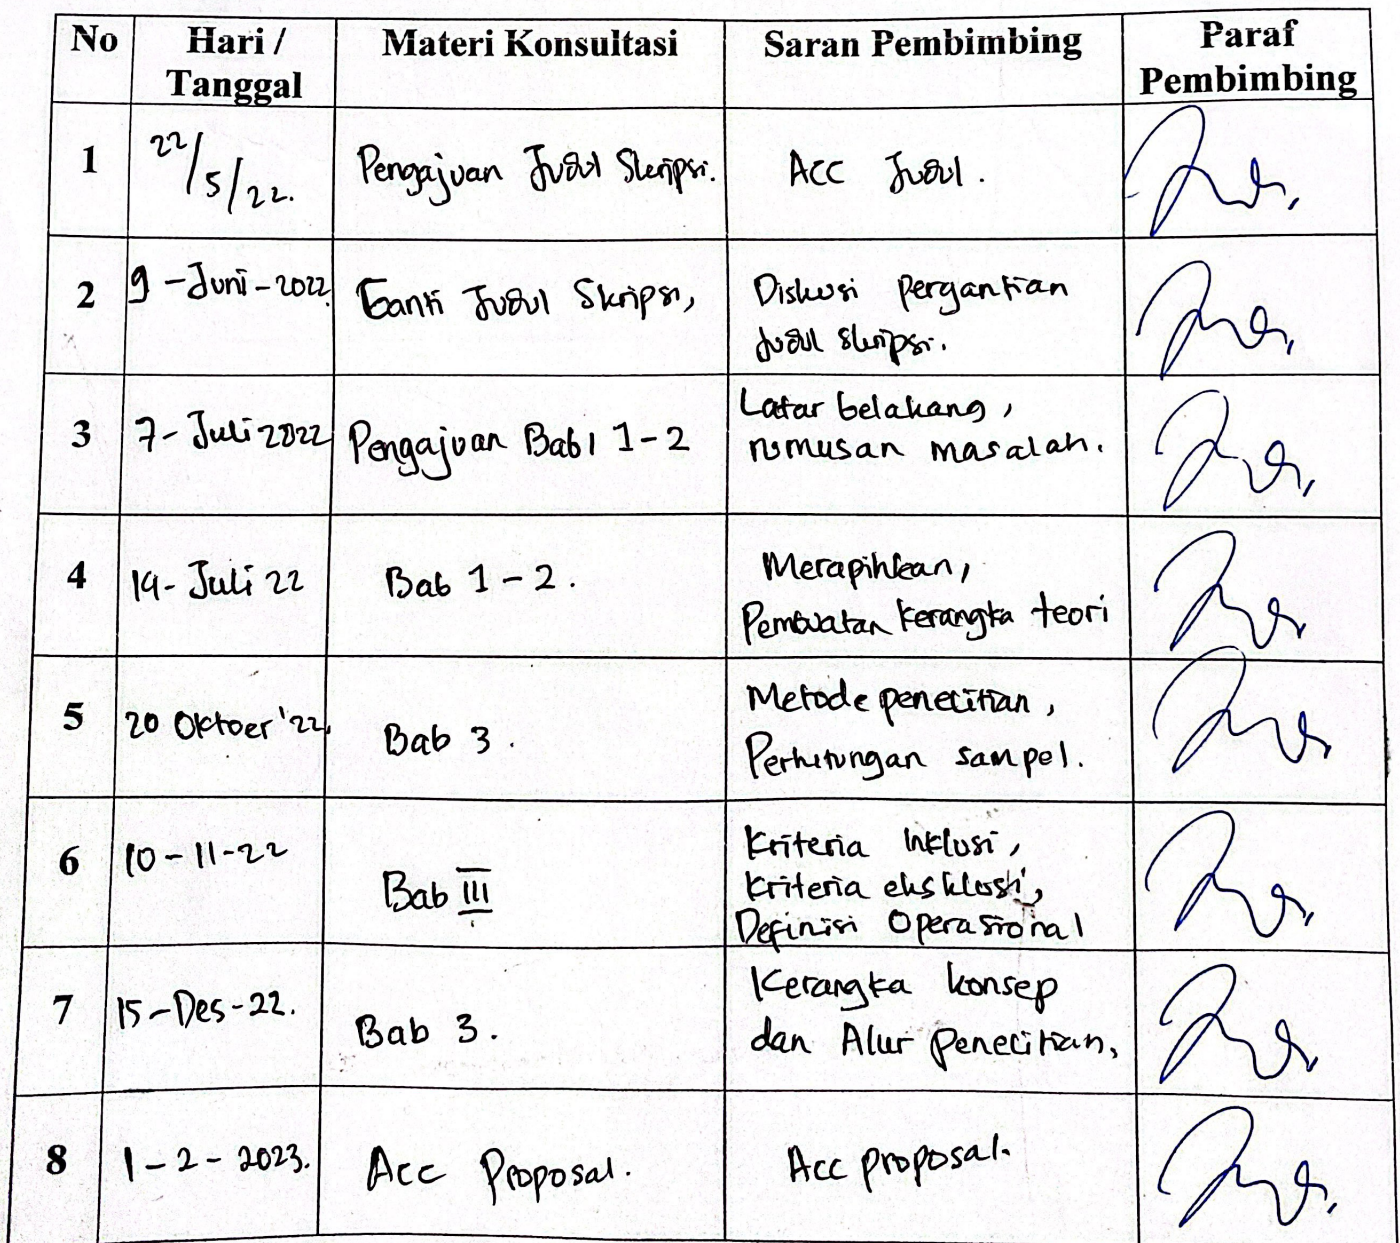 No Hari / Tanggal Materi Konsultasi Saran Pembimbing Paraf Pembimbing
1 22/5/22. Pengajuan Judul Skripsi. ACC Judul.
2 9-Juni-2022 Ganti Judul Skripsi, Diskusi pergantian
Judul skripsi.
3 7-Juli 2022 Pengajuan Bab 1 1-2 Latar belakang,
rumusan masalah.
4 14-Juli 22 Bab 1-2. Merapihkan,
Pembuatan kerangka teori
5 20 Oktoer '22, Bab 3. Metode penelitian,
Perhitungan sampel.
6 10-11-22 Bab III Kriteria Inklusi,
kriteria eksklusi,
Definisi Operasional
7 15-Des-22. Bab 3. Kerangka konsep
dan Alur penelitian,
8 1-2-2023. Acc Proposal. Acc proposal.